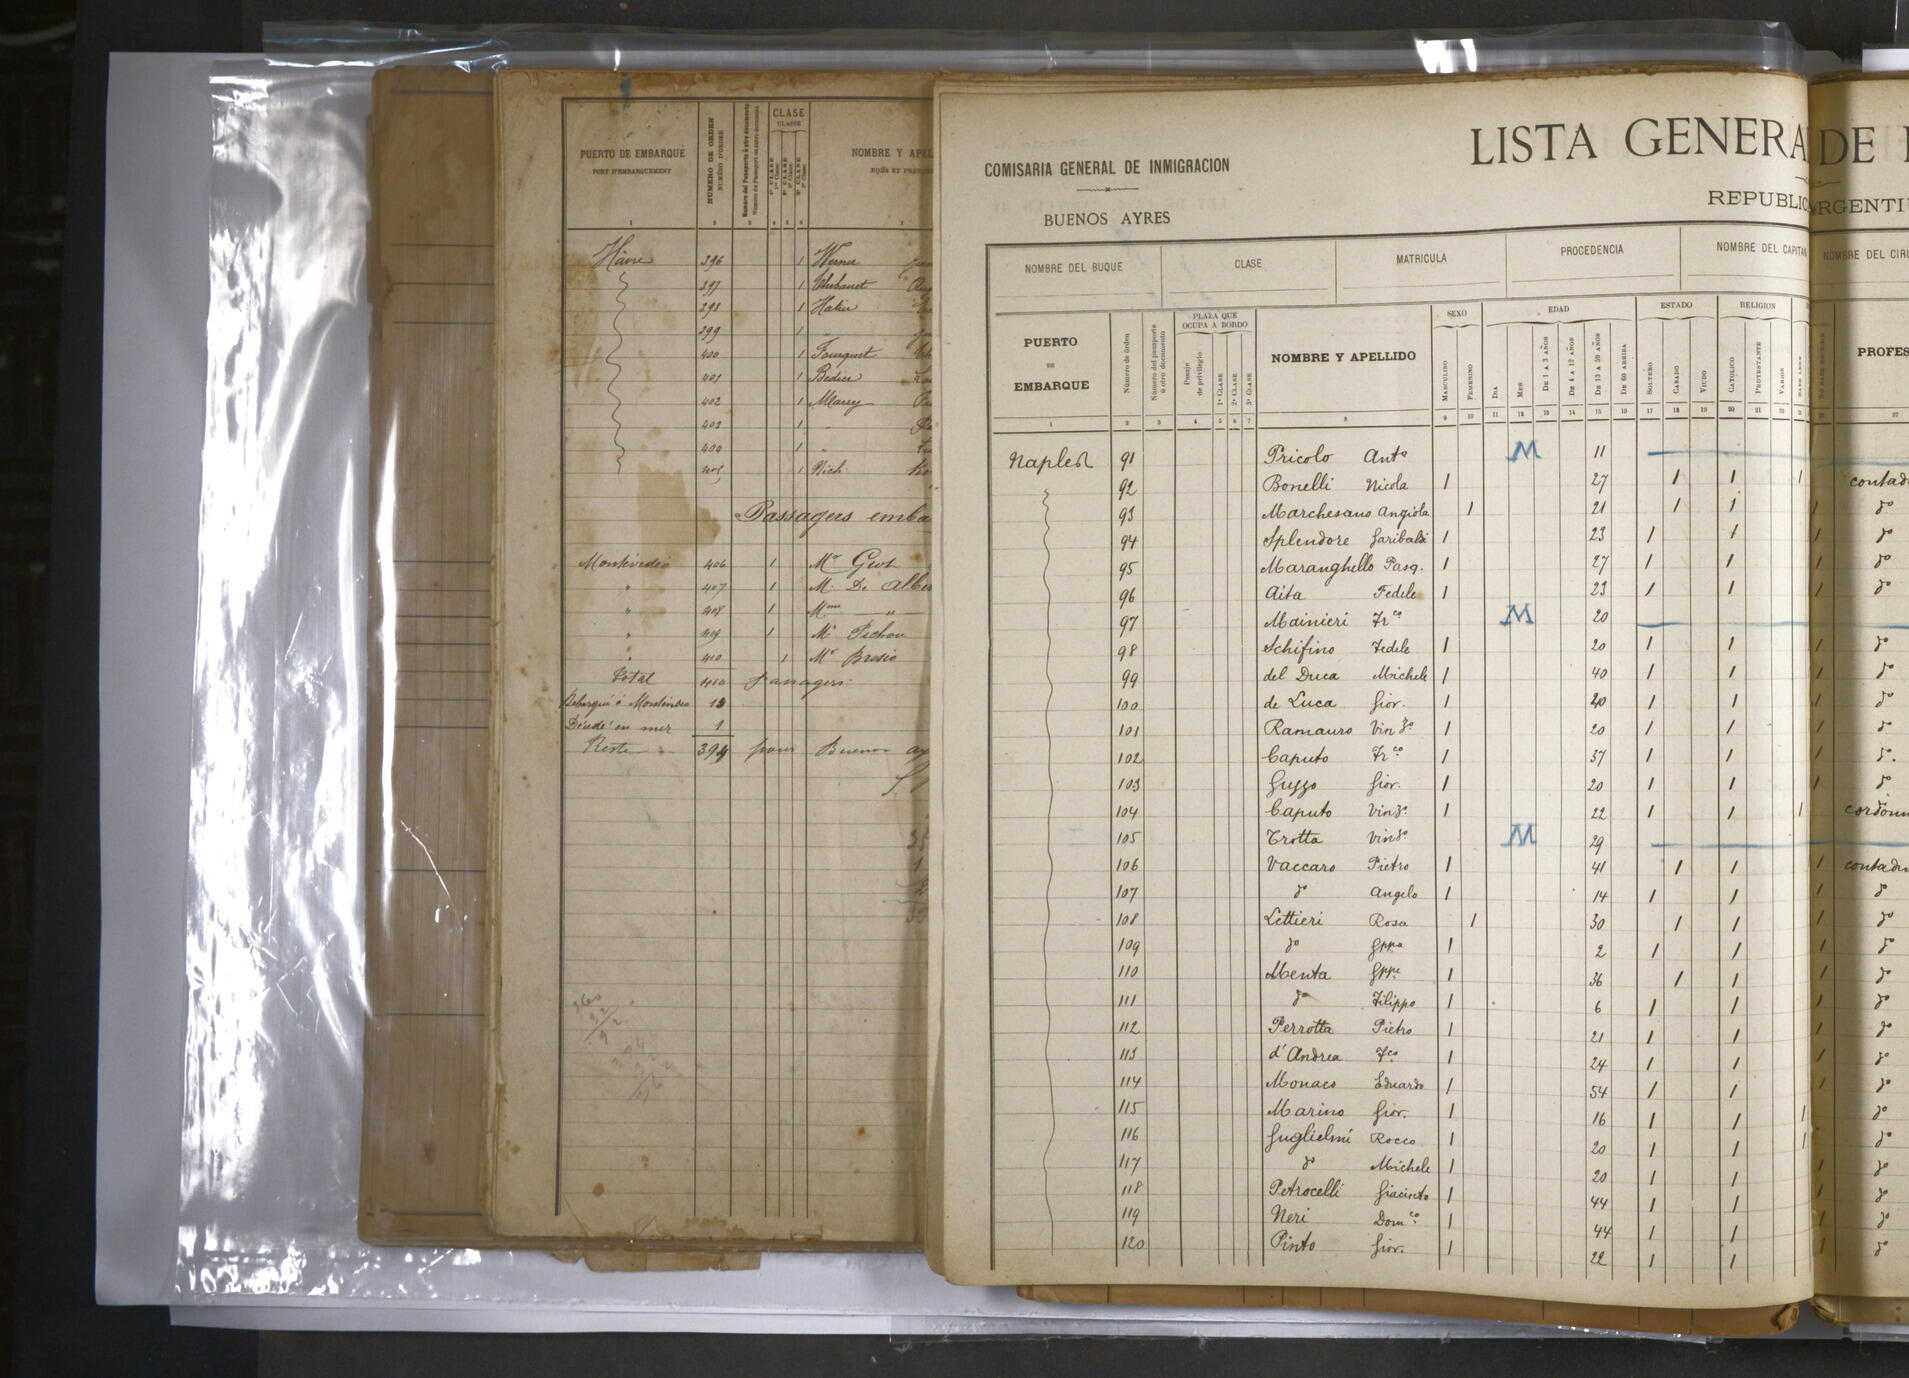 PUERTO DE EMBARQUE
PORT D'EMBARQUEMENT
NUMERO DE ORDEN
NUMÉRO D'ORDRE
CLASE
CLASSE
1ª CLASE
2ª CLASE
3ª CLASE
NOMBRE Y APEL
NOMS ET PRÉ
Hâvre 396 1 Werner
397 1 Thibaut
398 1
399 1 "
400 1 Fourquet
401 1 Bédier
402 1 Marry
403 1 "
404 1 "
405 1 Rich
Passagers emba
Montévidéo 406 1 Mr Gros
" 407 1 M. De Alber
" 408 1 Mme "
" 409 1 Mr Pichon
" 410 1 Mr Brosio
Total 410 passagers
Débarqué à Montévideo
Décédé en mer 1
Reste 394 pour Buenos ay
COMISARIA GENERAL DE INMIGRACION
BUENOS AYRES
LISTA GENERA DE
REPUBLIC ARGENTI
NOMBRE DEL BUQUE
CLASE
MATRICULA
PROCEDENCIA
NOMBRE DEL CAPITAN
NOMBRE DEL CIRU
PUERTO DE EMBARQUE
Número de órden
Número del pasaporte ú otro documento
PLAZA QUE OCUPA A BORDO
Pasaje de privilegio
1ª CLASE
2ª CLASE
3ª CLASE
NOMBRE Y APELLIDO
SEXO
MASCULINO
FEMENINO
EDAD
DIA
MES
DE 1 A 3 AÑOS
DE 4 A 12 AÑOS
DE 13 A 59 AÑOS
DE 60 ARRIBA
ESTADO
SOLTERO
CASADO
VIUDO
RELIGION
CATOLICO
PROTESTANTE
VARIOS
PROFES
1 2 3 4 5 6 7 8 9 10 11 12 13 14 15 16 17 18 19 20 21 22 27
Naples 91 Pricolo Antº M 11
92 Bonelli Nicola 1 27 1 1 1 contad
93 Marchesano Angiola 1 21 1 1 1 dº
94 Splendore Garibaldi 1 23 1 1 1 dº
95 Maranghello Pasq. 1 27 1 1 1 dº
96 Aita Fedele 1 23 1 1 1 dº
97 Mainieri Frco M 20
98 Schifino Fedele 1 20 1 1 1 dº
99 del Duca Michele 1 40 1 1 1 dº
100 de Luca Giov. 1 20 1 1 1 dº
101 Ramauro Vinzº 1 20 1 1 1 dº
102 Caputo Frco 1 37 1 1 1 dº
103 Guzzo Giov. 1 20 1 1 1 dº
104 Caputo Vinzº 1 22 1 1 1 cordonn
105 Trotta Vinzº M 29
106 Vaccaro Pietro 1 41 1 1 1 contadi
107 dº Angelo 1 14 1 1 1 dº
108 Lettieri Rosa 1 30 1 1 1 dº
109 dº Gppa 1 2 1 1 1 dº
110 Menta Gppe 1 36 1 1 1 dº
111 dº Filippo 1 6 1 1 1 dº
112 Perrotta Pietro 1 21 1 1 1 dº
113 d'Andrea Fco 1 24 1 1 1 dº
114 Monaco Eduardo 1 54 1 1 1 dº
115 Marino Giov. 1 16 1 1 1 dº
116 Guglielmi Rocco 1 20 1 1 1 dº
117 dº Michele 1 20 1 1 1 dº
118 Petrocelli Giacinto 1 44 1 1 1 dº
119 Neri Domco 1 44 1 1 1 dº
120 Pinto Giov. 1 22 1 1 1 dº